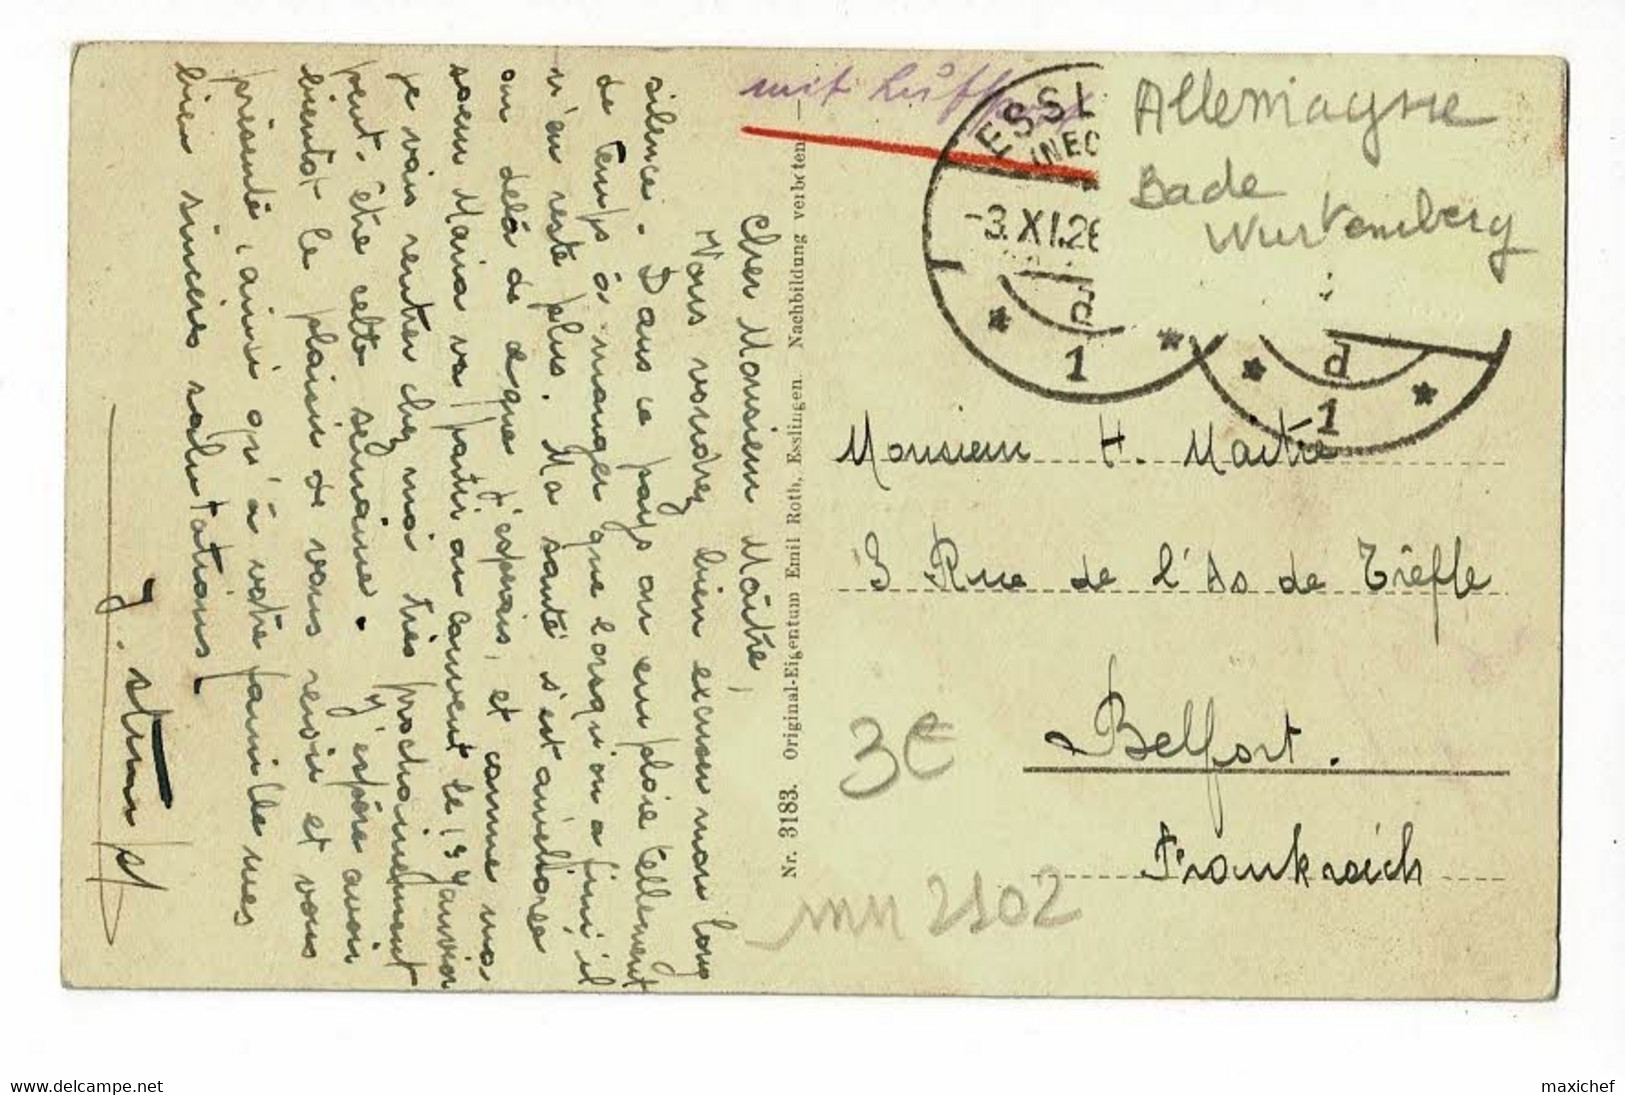 Cher Monsieur Maître,
Vous voudrez bien excuser mon long
silence. Dans ce pays on emploie tellement
de temps à manger que lorsqu'on a fini il
n'en reste plus. Ma santé s'est améliorée
au delà de ce que j'espérais, et comme ma
soeur Maria va partir au couvent le 19 Janvier
je vais rentrer chez moi très prochainement
peut-être cette semaine. J'espère avoir
bientôt le plaisir de vous revoir et vous
présente, ainsi qu'à votre famille mes
bien sincères salutations.
J. Sturm
Nr. 3183. Original-Eigentum Emil Roth, Esslingen. Nachbildung verboten.
mit Luftpost
ESSL
INEC
-3.XI.26
d
1
d
1
Allemagne
Bade
Wurtemberg
Monsieur H. Maitre
3 Rue de l'As de Trêfle
Belfort.
Frankreich
3€
mn 2102
www.delcampe.net
maxichef